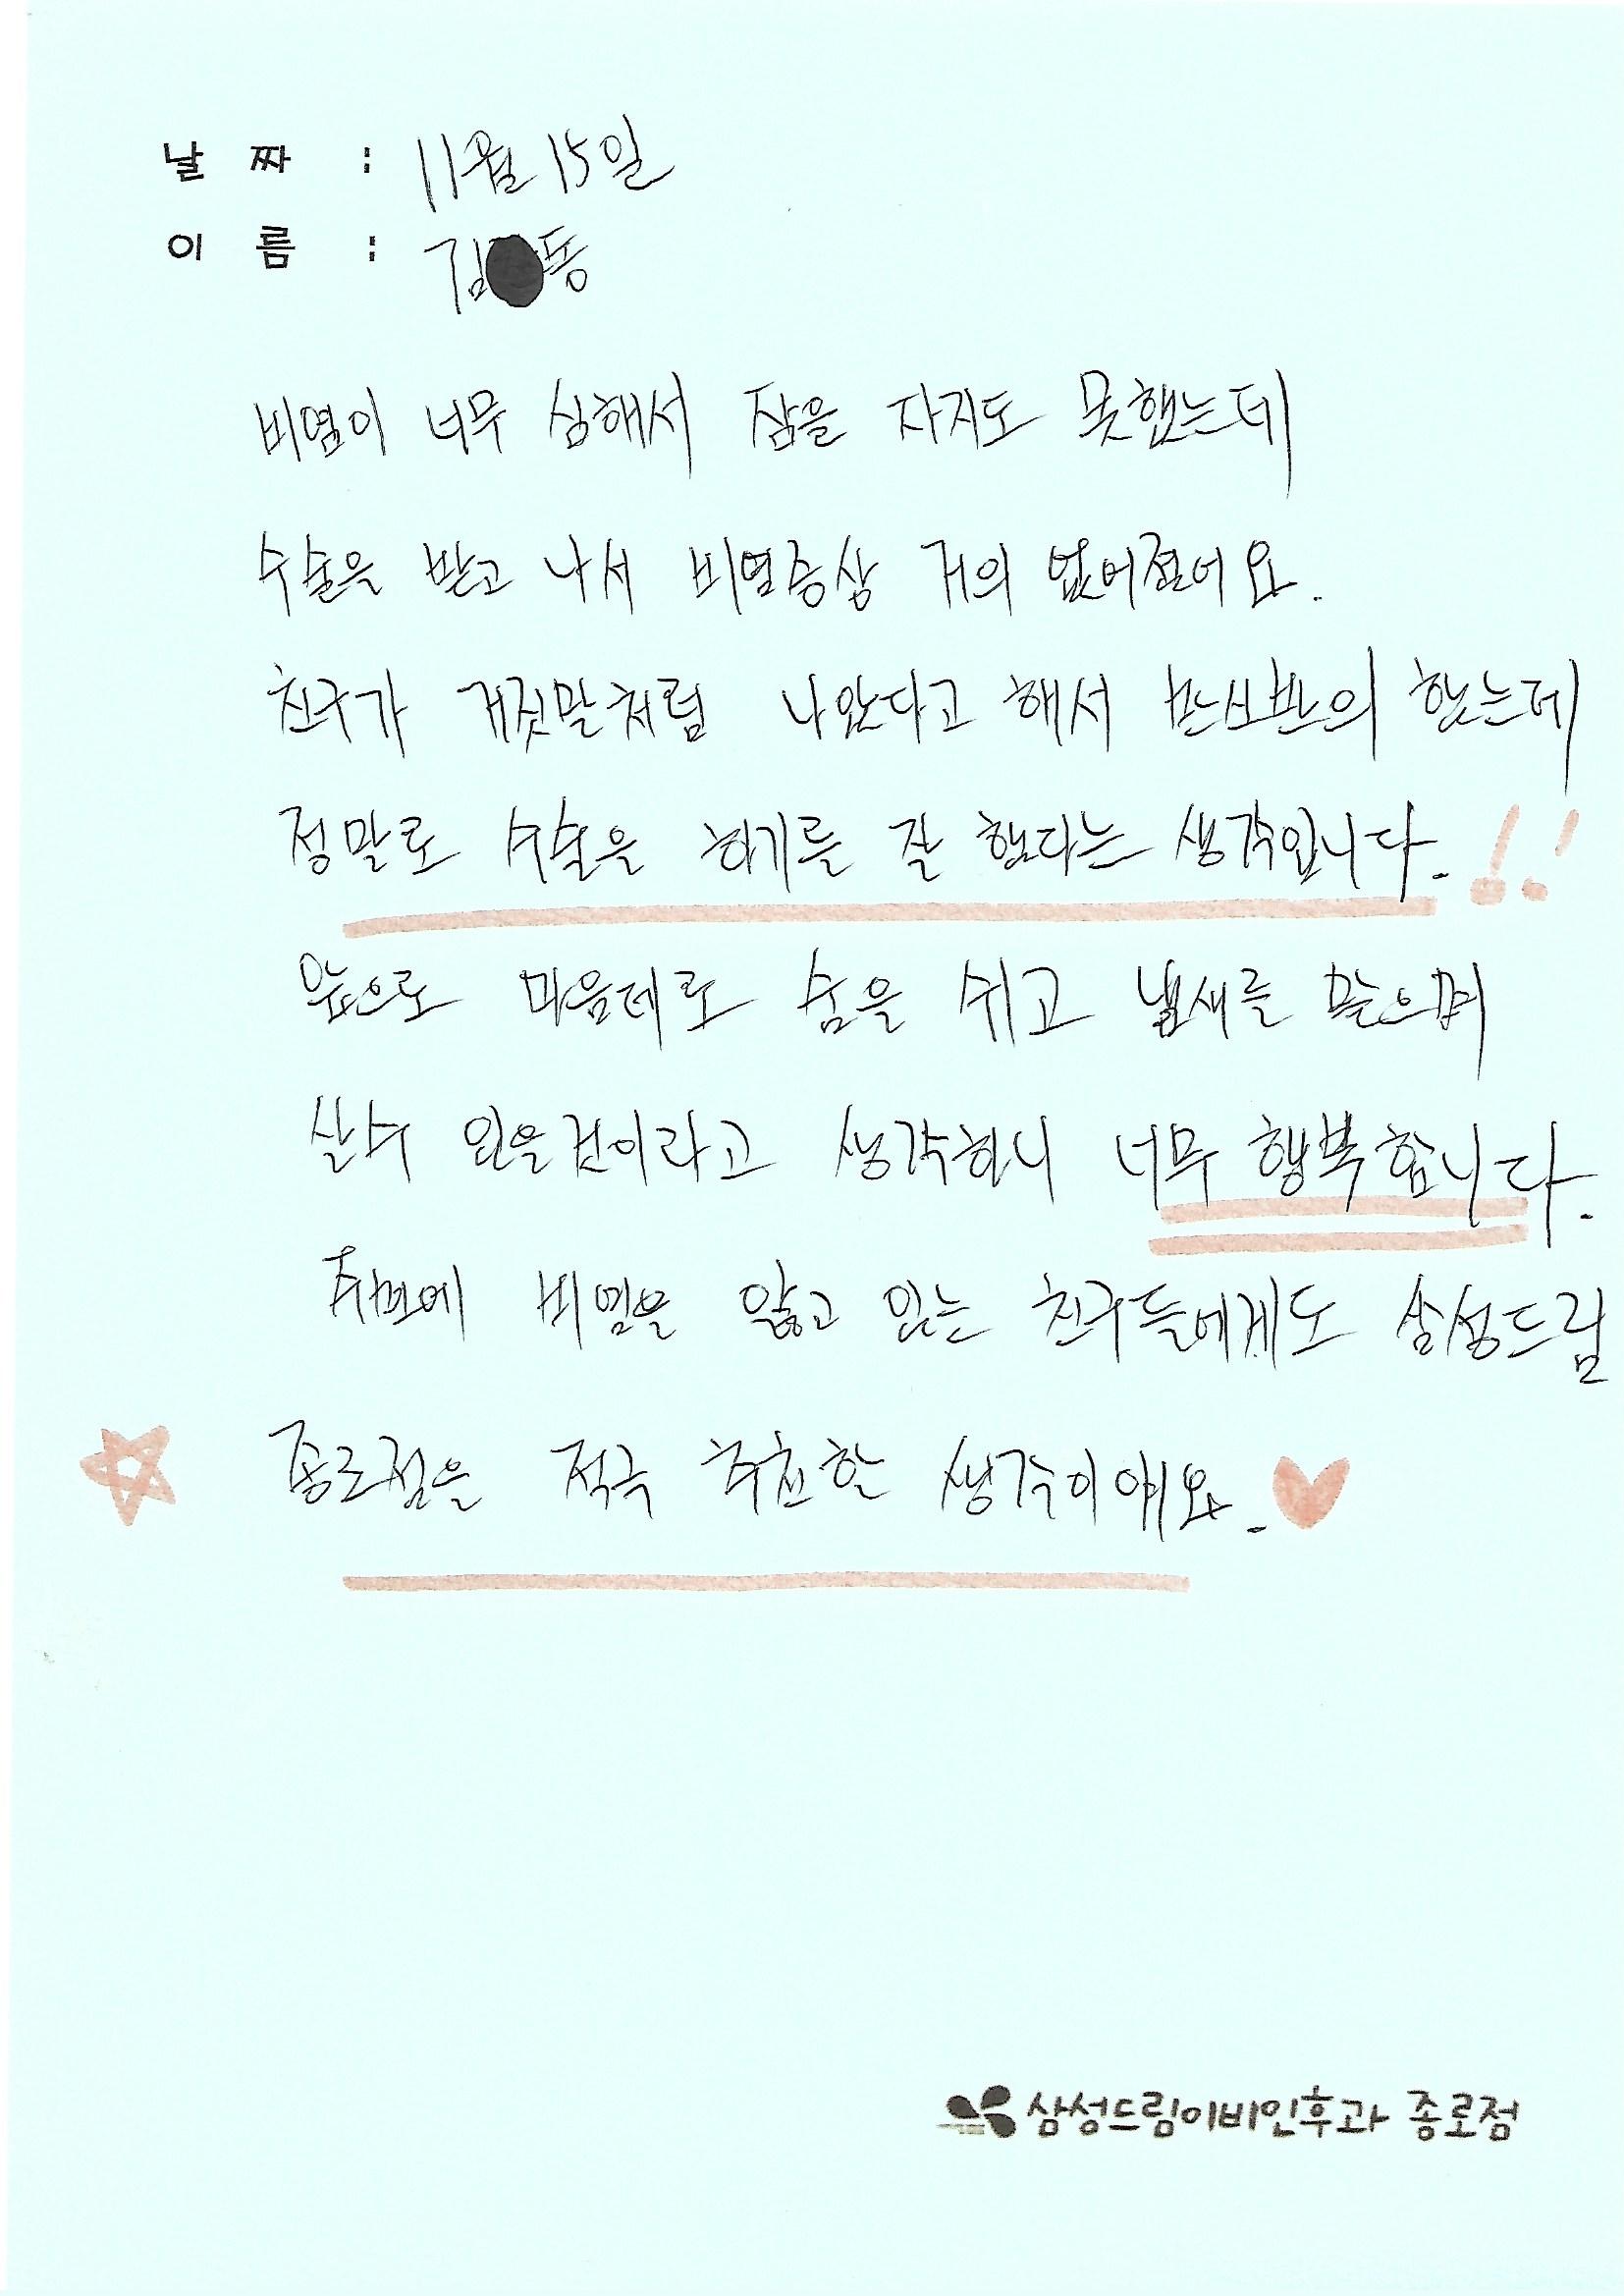 날 짜 : 11월 15일
이 름 : 김 동
비염이 너무 심해서 잠을 자지도 못했는데
수술을 받고 나서 비염증상 거의 없어졌어요.
친구가 거짓말처럼 나았다고 해서 반신반의 했는데
정말로 수술을 하기를 잘 했다는 생각입니다.!!
앞으로 마음데로 숨을 쉬고 냄새를 맡으며
살수 있을것이라고 생각하니 너무 행복합니다.
주변에 비염을 앓고 있는 친구들에게도 삼성드림
종로점을 적극 추천할 생각이얘요.
삼성드림이비인후과 종로점